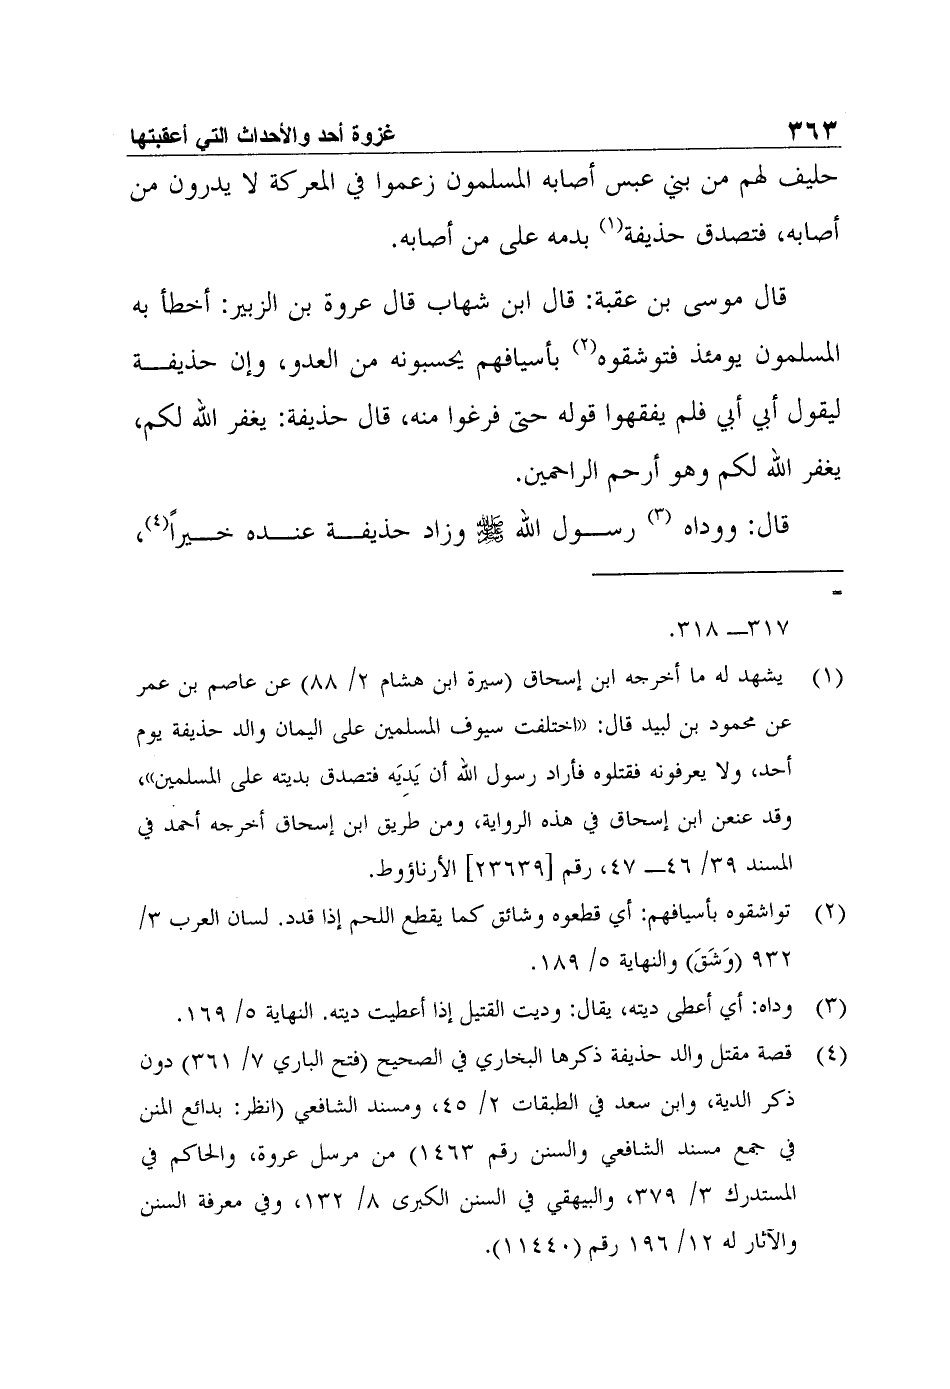 ٣٦٣ غزوة أحد والأحداث التي أعقبتها
حليف لهم من بني عبس أصابه المسلمون زعموا في المعركة لا يدرون من
أصابه، فتصدق حذيفة(١) بدمه على من أصابه.
قال موسى بن عقبة: قال ابن شهاب قال عروة بن الزبير: أخطأ به
المسلمون يومئذ فتوشقوه(٢) بأسيافهم يحسبونه من العدو، وإن حذيفـــة
ليقول أبي أبي فلم يفقهوا قوله حتى فرغوا منه، قال حذيفة: يغفر الله لكم،
يغفر الله لكم وهو أرحم الراحمين.
قال: ووداه (٣) رســـول الله ﷺ وزاد حذيفـــة عنـــده خـــيراً(٤)،
=
٣١٧ــ ٣١٨.
(١) يشهد له ما أخرجه ابن إسحاق (سيرة ابن هشام ٢/ ٨٨) عن عاصم بن عمر
عن محمود بن لبيد قال: «اختلفت سيوف المسلمين على اليمان والد حذيفة يوم
أحد، ولا يعرفونه فقتلوه فأراد رسول الله أن يَدِيَه فتصدق بديته على المسلمين»،
وقد عنعن ابن إسحاق في هذه الرواية، ومن طريق ابن إسحاق أخرجه أحمد في
المسند ٣٩/ ٤٦ــ ٤٧، رقم [٢٣٦٣٩] الأرناؤوط.
(٢) تواشقوه بأسيافهم: أي قطعوه وشائق كما يقطع اللحم إذا قدد. لسان العرب ٣/
٩٣٢ (وَشَقَ) والنهاية ٥/ ١٨٩.
(٣) وداه: أي أعطى ديته، يقال: وديت القتيل إذا أعطيت ديته. النهاية ٥/ ١٦٩.
(٤) قصة مقتل والد حذيفة ذكرها البخاري في الصحيح (فتح الباري ٧/ ٣٦١) دون
ذكر الدية، وابن سعد في الطبقات ٢/ ٤٥، ومسند الشافعي (انظر: بدائع المنن
في جمع مسند الشافعي والسنن رقم ١٤٦٣) من مرسل عروة، والحاكم في
المستدرك ٣/ ٣٧٩، والبيهقي في السنن الكبرى ٨/ ١٣٢، وفي معرفة السنن
والآثار له ١٢/ ١٩٦ رقم (١١٤٤٠).